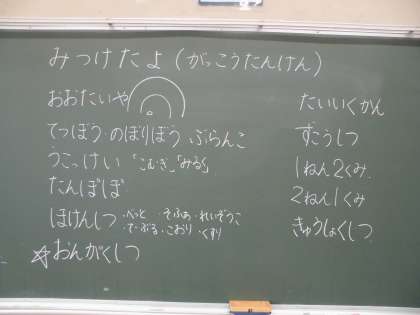 みつけたよ(がっこうたんけん)
おおたいや
てつぼう・のぼりぼう ぶらんこ
うこっけい「こむぎ」「みるく」
たんぽぽ
ほけんしつ ・べっと ・そふぁ ・れいぞうこ
・てーぶる ・こおり ・くすり
☆おんがくしつ
たいいくかん
ずこうしつ
1ねん2くみ
2ねん1くみ
きゅうしょくしつ